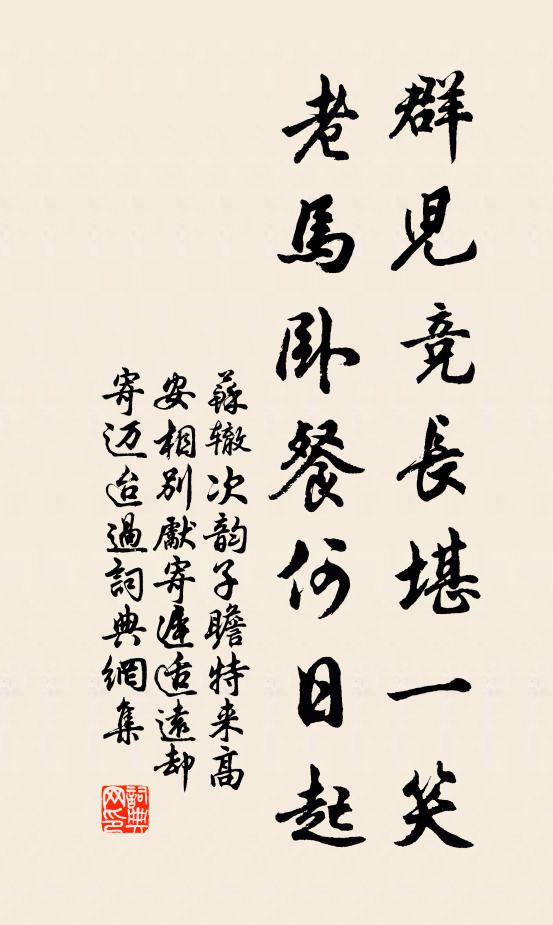 群兒競長堪一笑
老馬卧餐何日起
蘇轍次韵子瞻特来高
安相別獻寄遲适遠却
寄迈迨過詞典網集
詞典网印